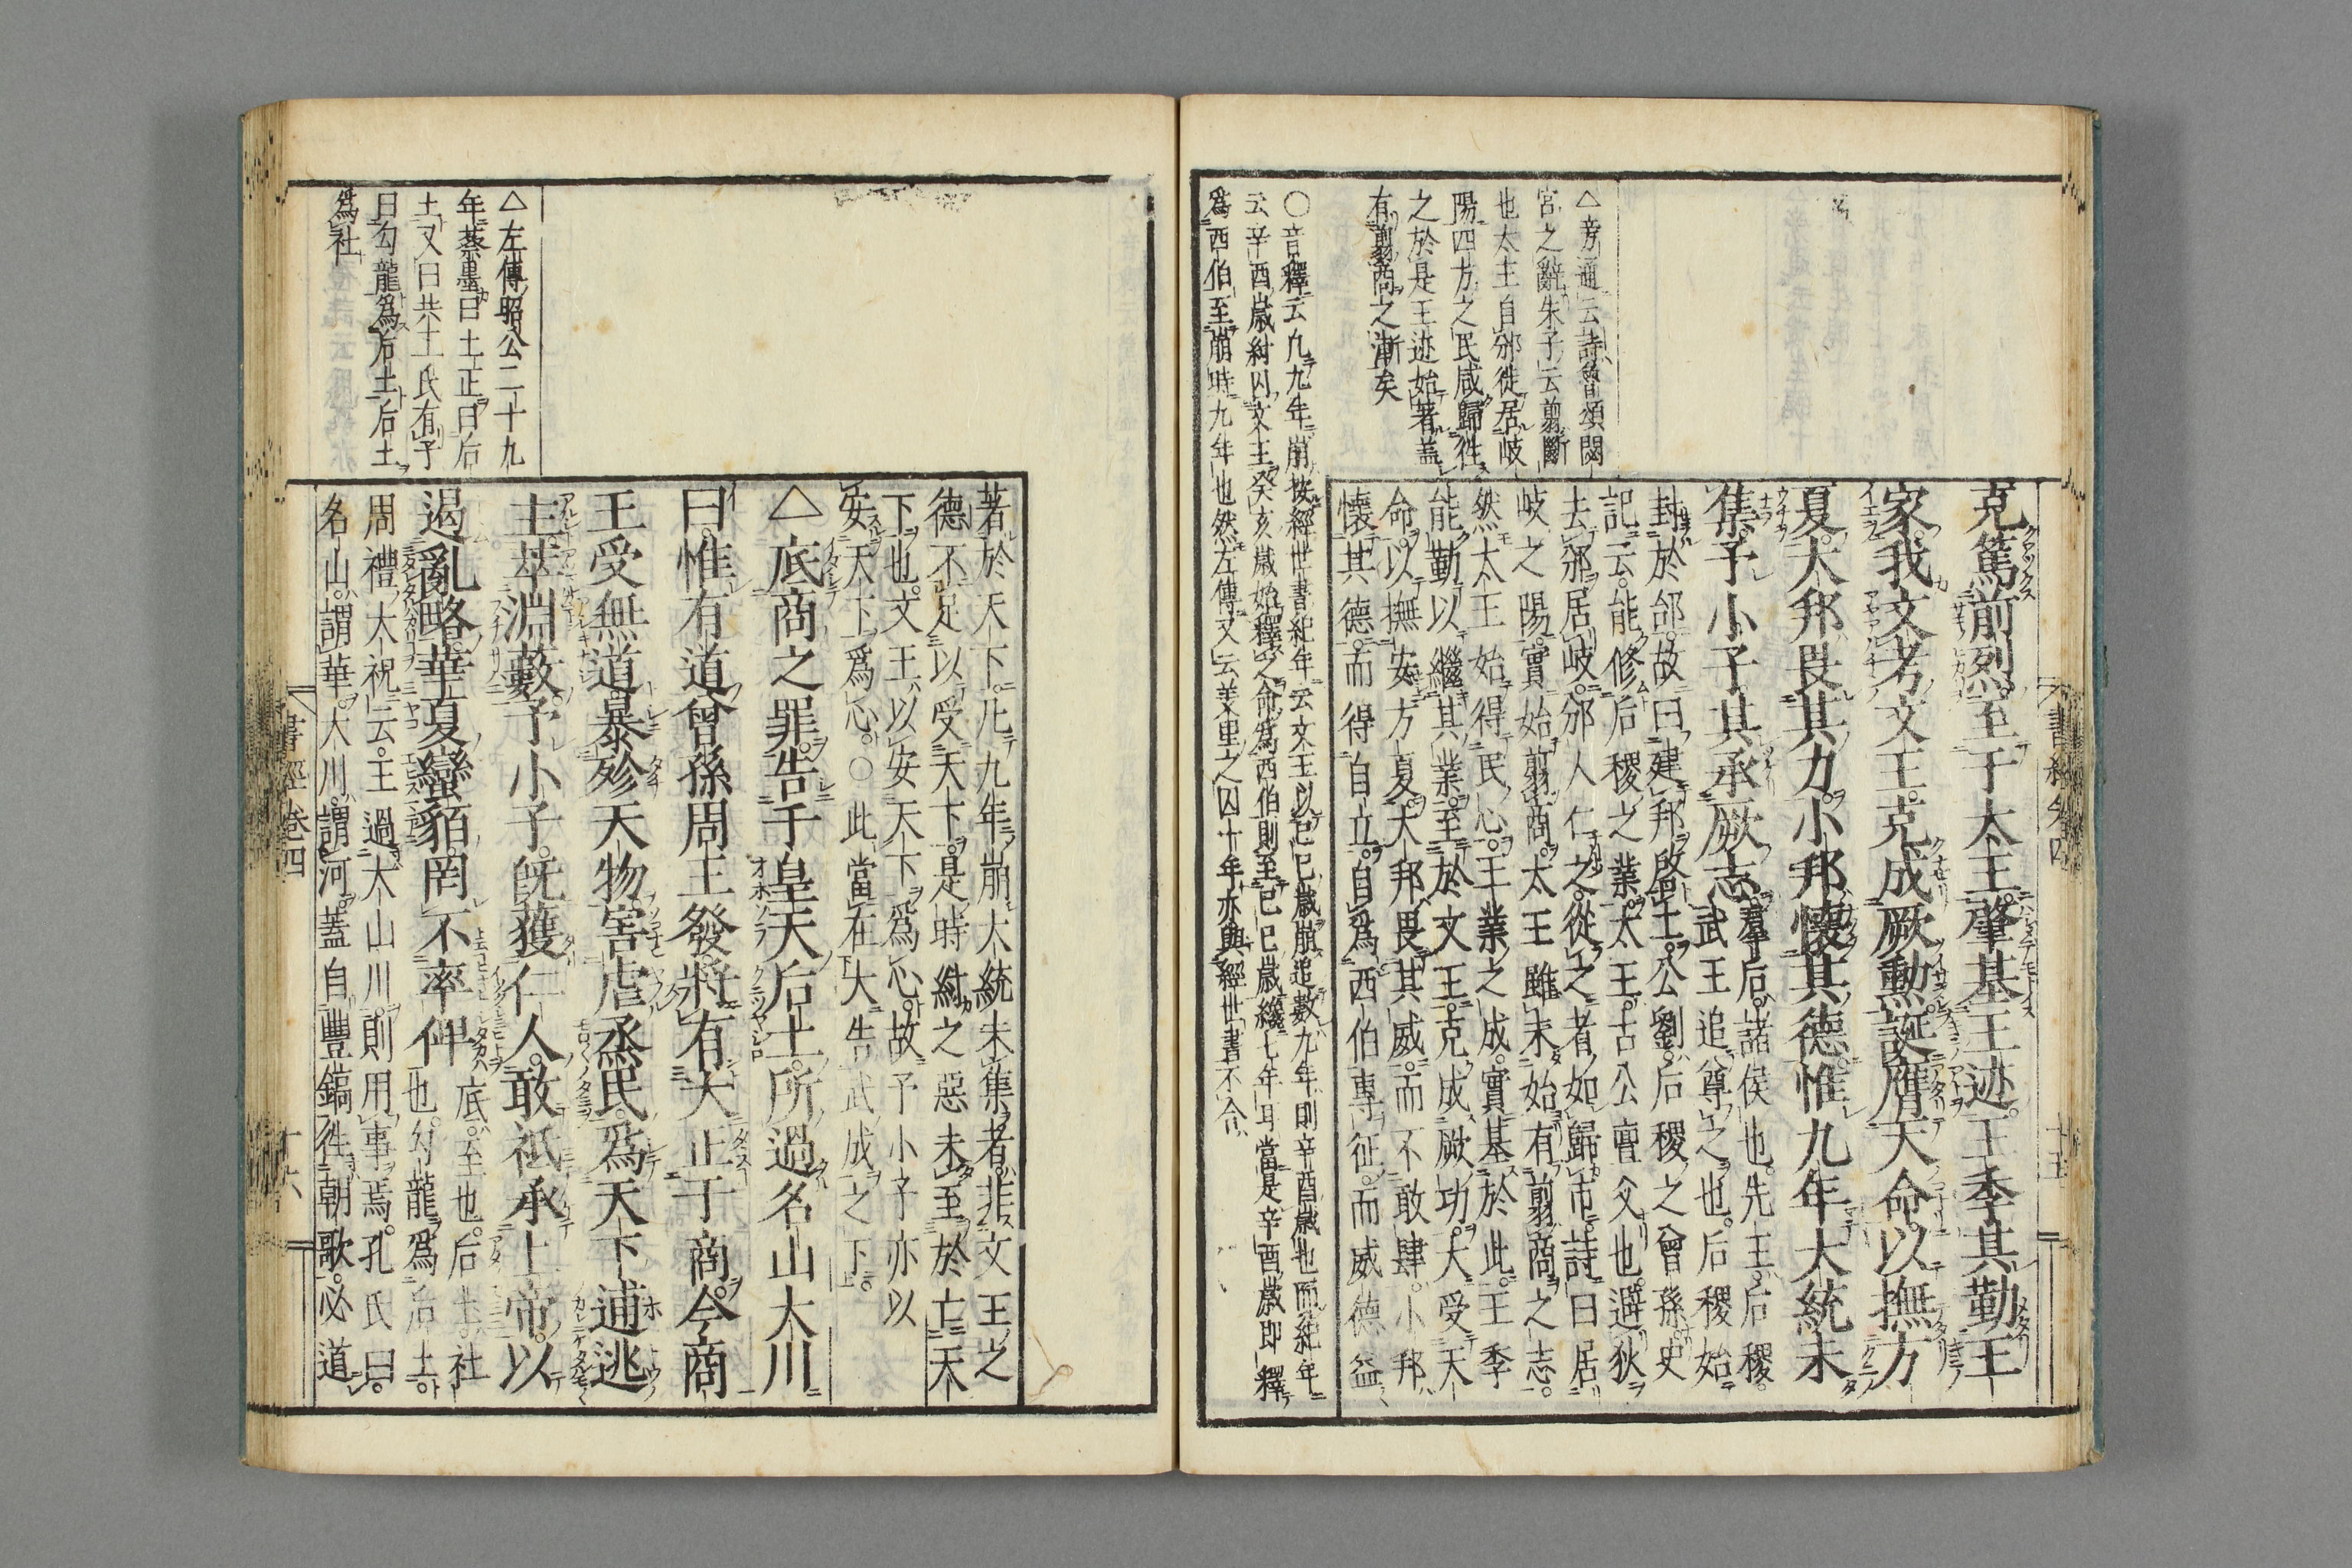 克篤前烈。至于太王。肇基王迹。王季其勤王
家。我文考文王。克成厥勲。誕膺天命。以撫方
夏。大邦畏其力。小邦懷其德。惟九年大統未
集。予小子。其承厥志。
羣后。諸侯也。先王。后稷。
武王追尊之也。后稷始
封於邰。故曰建邦啓土。公劉。后稷之曾孫。史
記云。能修后稷之業。太王。古公亶父也。避狄
去邠居岐。邠人仁之。從之者。如歸市。詩曰居
岐之陽。實始翦商。太王雖未始有翦商之志。
然太王始得民心。王業之成。實基於此。王季
能勤以繼其業。至於文王。克成厥功。大受天
命。以撫安方夏。大邦畏其威。而不敢肆。小邦
懷其德。而得自立。自爲西伯專征。而威德益
△旁通云詩魯頌閟
宮之辭朱子云翦斷
也太王自邠徙居岐
陽四方之民咸歸徃
之於是王迹始著蓋
有翦商之漸矣
○音釋云九九年崩按經世書紀年云文王以己巳歲崩追數九年則辛酉歲也而紀年
云辛酉歲紂囚文王癸亥歲始釋之命爲西伯則至己巳歲纔七年耳當是辛酉歲即釋
爲西伯至崩時九年也然左傳又云羑里之囚十年亦與經世書不合
書經卷四
十五
著於天下。凡九年崩。大統未集者。非文王之
德不足以受天下。是時紂之惡未至於亡天
下也。文王以安天下爲心。故予小子亦以
安天下爲心。○此當在大告武成之下。
△底商之罪。告于皇天后土。所過名山大川
曰。惟有道曾孫周王發。將有大正于商。今商
王受無道。暴殄天物。害虐烝民。爲天下逋逃
主。萃淵藪。予小子。旣獲仁人。敢祗承上帝。以
遏亂略。華夏蠻貊。罔不率俾
底。至也。后土。社
也。勾龍爲后土。
周禮大祝云。王過大山川。則用事焉。孔氏曰。
名山。謂華。大川。謂河。蓋自豐鎬徃朝歌。必道
△左傳昭公二十九
年蔡墨曰土正曰后
土又曰共工氏有子
曰勾龍爲后土后土
爲社
書經卷四
十六